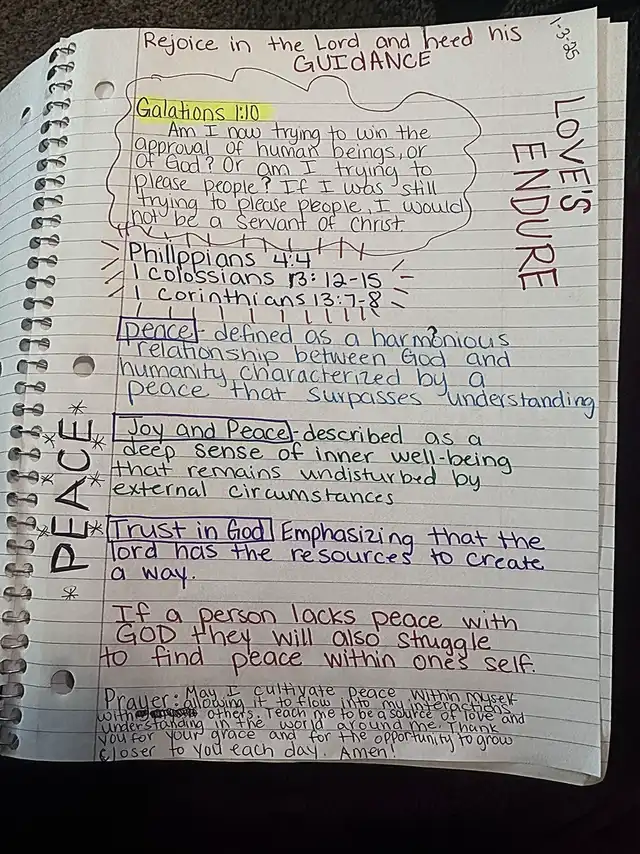 1-3-25
Rejoice in the Lord and heed his
GUIdANCE
LOVE'S
ENDURE
Galations 1:10
Am I now trying to win the
approval of human beings, or
of God? Or am I trying to
please people? If I was still
trying to please people, I would
not be a servant of Christ.
Philppians 4:4
1 Colossians 3:12-15
1 Corinthians 13:7-8
peace - defined as a harmonious
relationship between God and
humanity characterized by a
peace that surpasses understanding
*PEACE*
Joy and Peace - described as a
deep sense of inner well-being
that remains undisturbed by
external circumstances
Trust in God Emphasizing that the
lord has the resources to create
a way.
If a person lacks peace with
GOD they will also struggle
to find peace within ones self.
Prayer: May I cultivate peace within myself
allowing it to flow into my interactions
with others. Teach me to be a source of love and
understanding in the world around me. Thank
you for your grace and for the opportunity to grow
closer to you each day. Amen!